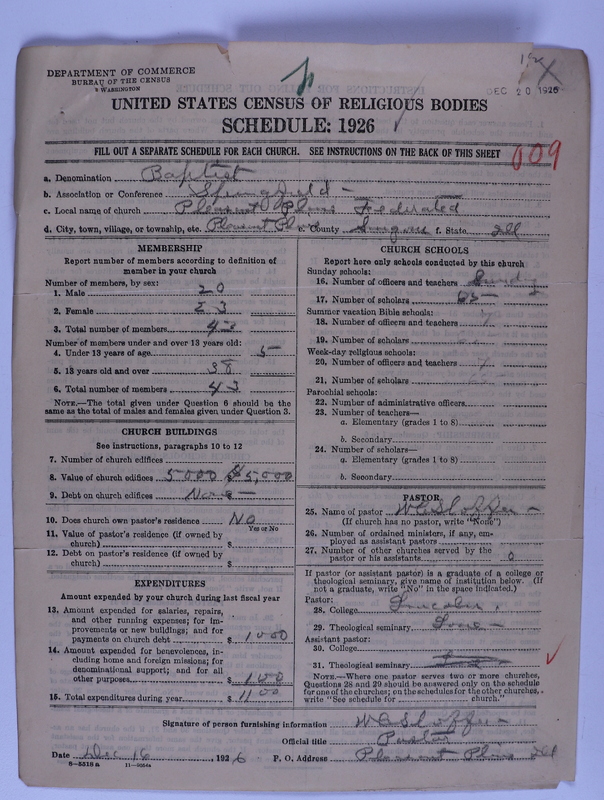 DEPARTMENT OF COMMERCE
BUREAU OF THE CENSUS
WASHINGTON
DEC 20 1926
UNITED STATES CENSUS OF RELIGIOUS BODIES
SCHEDULE: 1926
FILL OUT A SEPARATE SCHEDULE FOR EACH CHURCH. SEE INSTRUCTIONS ON THE BACK OF THIS SHEET
609
a. Denomination Baptist
b. Association or Conference Springfield -
c. Local name of church Pleasant Plains Federated
d. City, town, village, or township, etc. Pleasant Pl e. County f. State Ill
MEMBERSHIP
Report number of members according to definition of
member in your church
Number of members, by sex:
1. Male 20
2. Female 23
3. Total number of members 43
Number of members under and over 13 years old:
4. Under 13 years of age 5
5. 13 years old and over 38
6. Total number of members 43
NOTE.—The total given under Question 6 should be the
same as the total of males and females given under Question 3.
CHURCH BUILDINGS
See instructions, paragraphs 10 to 12
7. Number of church edifices
8. Value of church edifices 5000 $5,000
9. Debt on church edifices None -
10. Does church own pastor's residence No
Yes or No
11. Value of pastor's residence (if owned by
church) $
12. Debt on pastor's residence (if owned by
church) $
EXPENDITURES
Amount expended by your church during last fiscal year
13. Amount expended for salaries, repairs,
and other running expenses; for im-
provements or new buildings; and for
payments on church debt $ 1000
14. Amount expended for benevolences, in-
cluding home and foreign missions; for
denominational support; and for all
other purposes $ 100
15. Total expenditures during year $ 1100
CHURCH SCHOOLS
Report here only schools conducted by this church
Sunday schools:
16. Number of officers and teachers
17. Number of scholars 65
Summer vacation Bible schools:
18. Number of officers and teachers
19. Number of scholars
Week-day religious schools:
20. Number of officers and teachers
21. Number of scholars
Parochial schools:
22. Number of administrative officers
23. Number of teachers—
a. Elementary (grades 1 to 8)
b. Secondary
24. Number of scholars—
a. Elementary (grades 1 to 8)
b. Secondary
PASTOR
25. Name of pastor
(If church has no pastor, write "None")
26. Number of ordained ministers, if any, em-
ployed as assistant pastors
27. Number of other churches served by the
pastor or his assistants 0
If pastor (or assistant pastor) is a graduate of a college or
theological seminary, give name of institution below. (If
not a graduate, write "No" in the space indicated.)
Pastor:
28. College Lincoln
29. Theological seminary
Assistant pastor:
30. College
31. Theological seminary
NOTE.—Where one pastor serves two or more churches,
Questions 28 and 29 should be answered only on the schedule
for one of the churches; on the schedules for the other churches,
write "See schedule for church."
Signature of person furnishing information
Official title Pastor
Date Dec 16, 1926 P. O. Address Pleasant Plains Ill
8-5318a 11-9054a